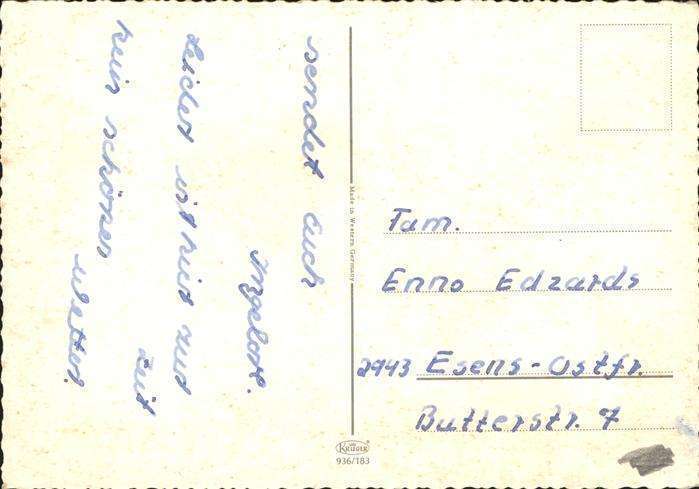 sendet euch
Ingelore.
Leider ist hier zur
Zeit
kein schönes
Wetter.
Made in Western Germany
Fam.
Enno Edzards
2943 Esens-Ostfr.
Butterstr. 7
KRÜGER
936/183